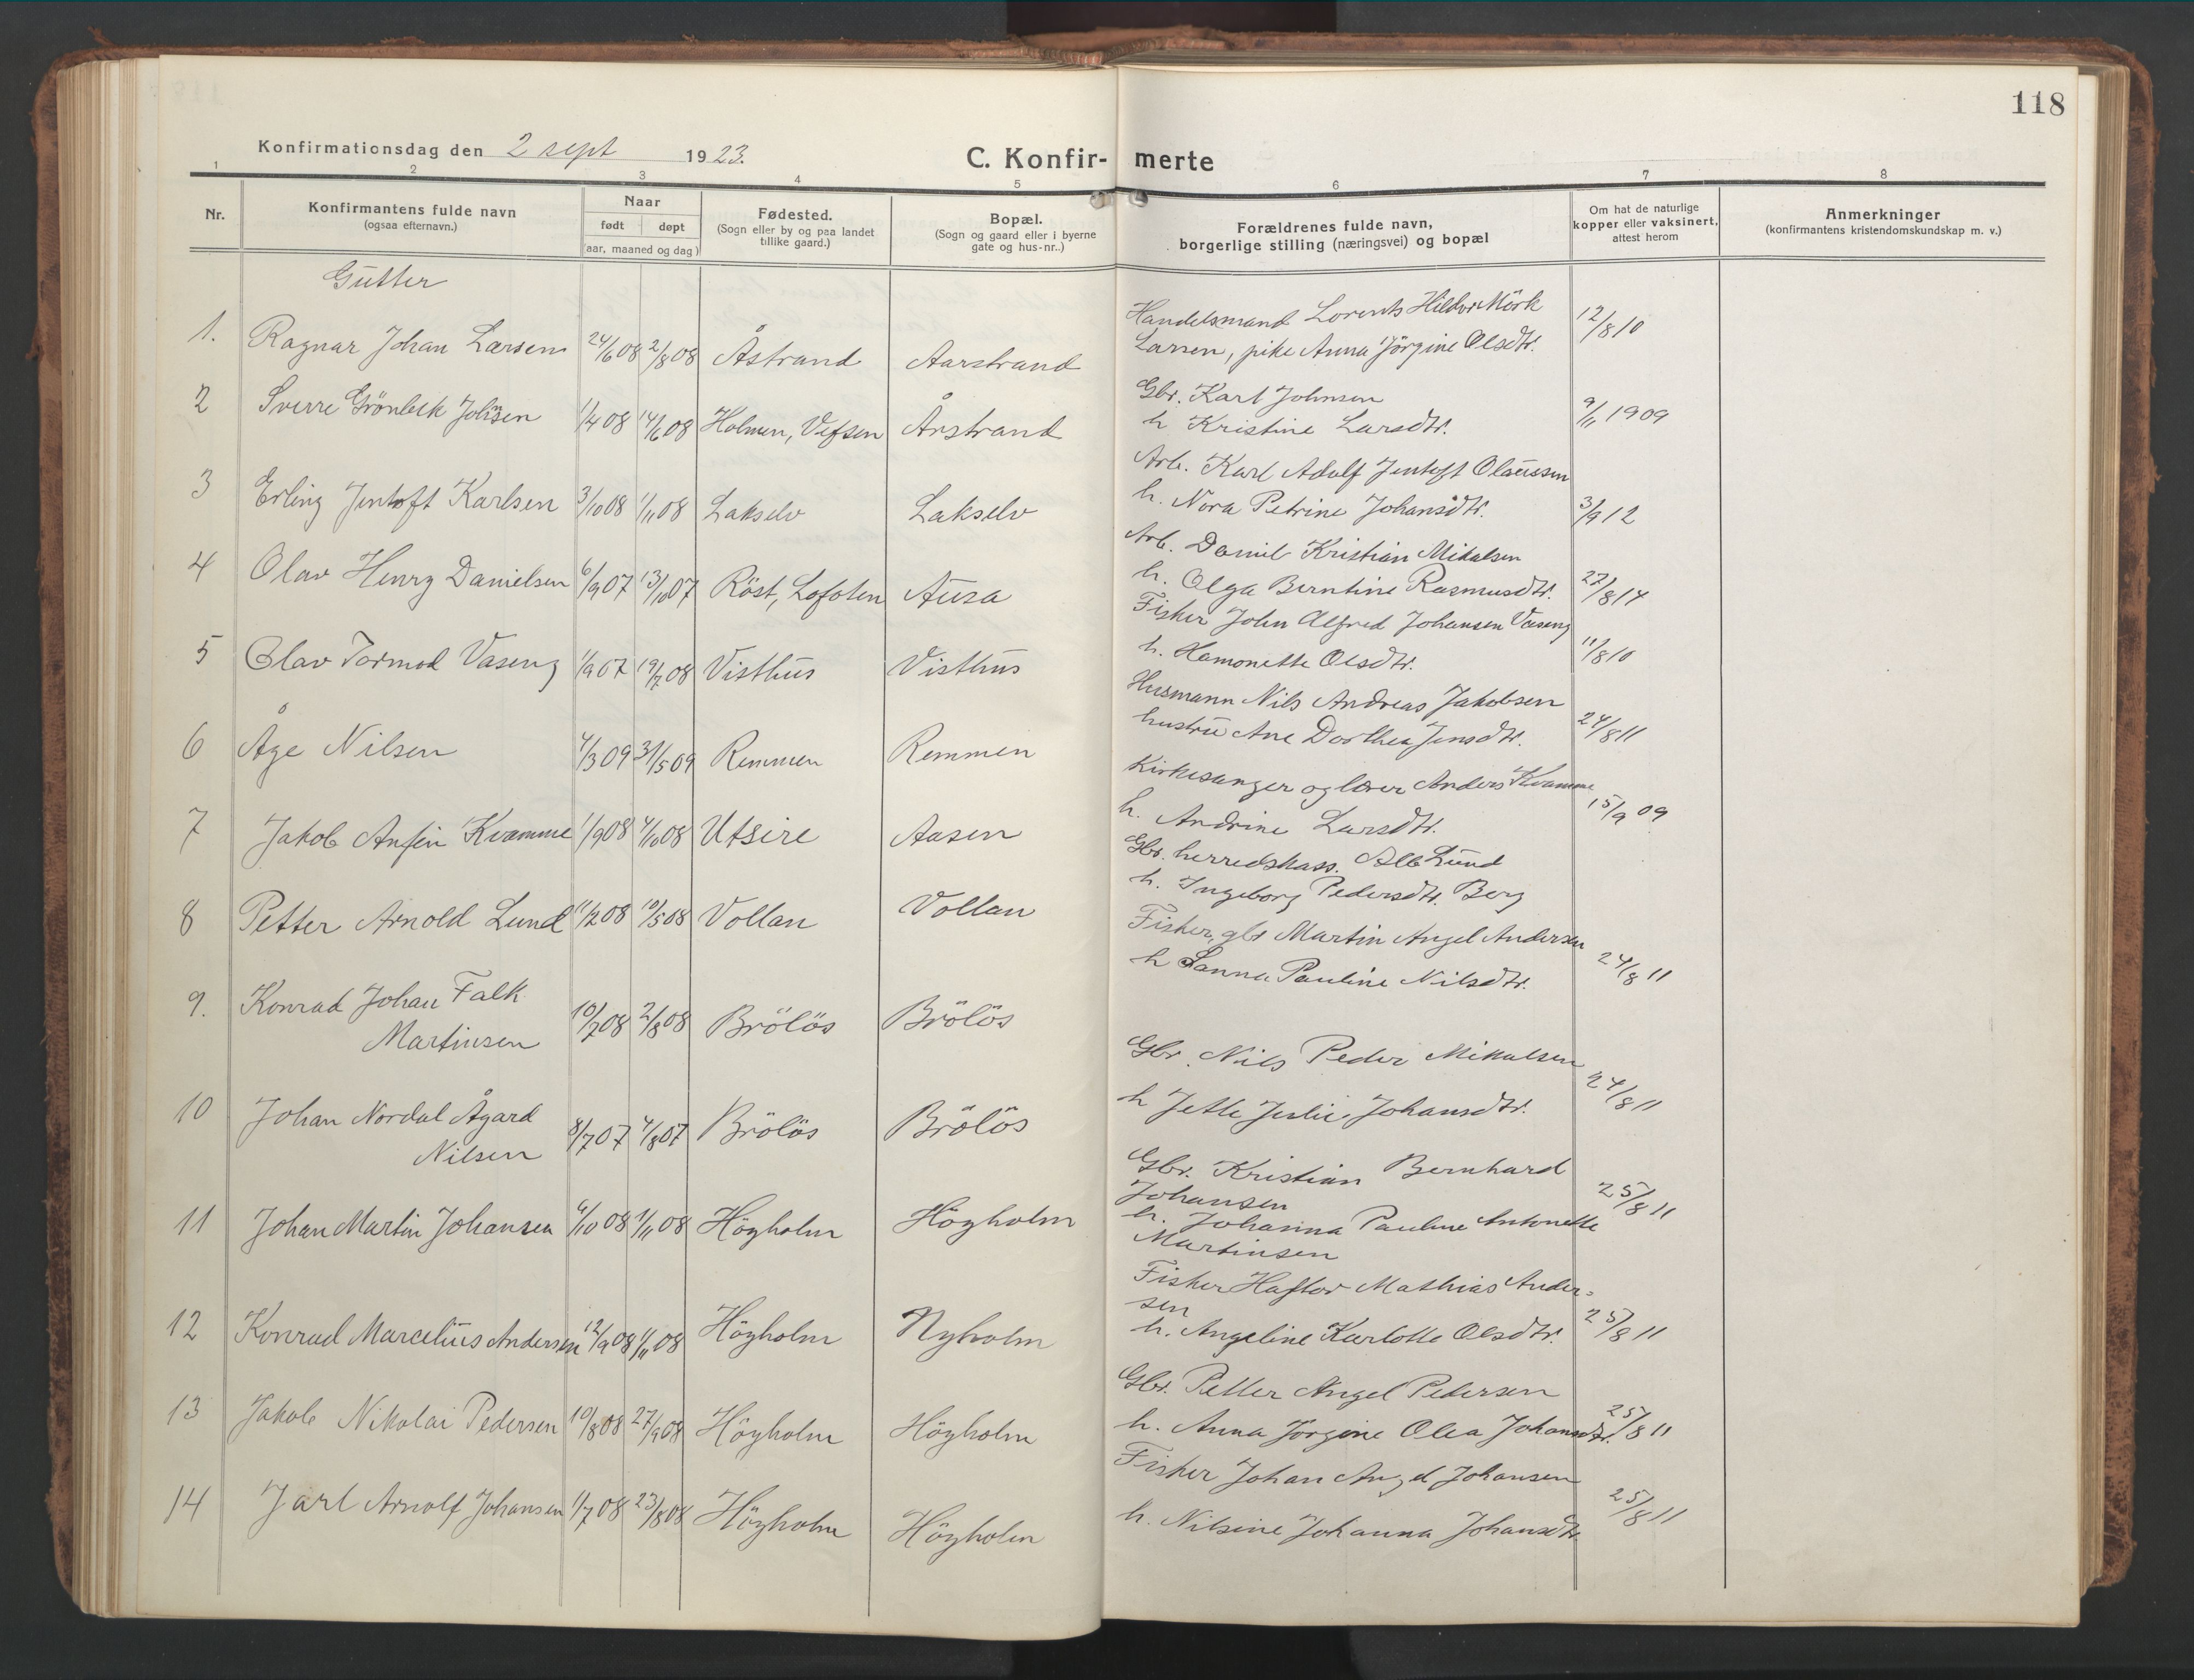 118
Konfirmationsdag den 2 sept 1923.
C. Konfir- merte
1 2 3 4 5 6 7 8
Nr.
Konfirmantens fulde navn
(ogsaa efternavn.)
Naar
født døpt
(aar, maaned og dag)
Fødested.
(Sogn eller by og paa landet
tillike gaard.)
Bopæl.
(Sogn og gaard eller i byerne
gate og hus-nr..)
Forældrenes fulde navn,
borgerlige stilling (næringsvei) og bopæl
Om hat de naturlige
kopper eller vaksinert,
attest herom
Anmerkninger
(konfirmantens kristendomskundskap m. v.)
Gutter
1. Ragnar Johan Larsen 24/6 08 2/8 08 Åstrand Aarstrand
Handelsmand Lorents Hildor Mörk
Larsen, pike Anna Jörgine Olsdtr. 12/8 10
2 Sverre Grönbek Johnsen 1/4 08 14/6 08 Holmen, Vefsen Årstrand
Gbr. Karl Johnsen
h Kristine Larsdtr. 9/11 1909
3 Erling Jentoft Karlsen 3/10 08 1/11 08 Lakselv Lakselv
Arb. Karl Adolf Jentoft Olaussen
h. Nora Petrine Johansdtr. 3/9 12
4 Olav Henry Danielsen 6/9 07 13/10 07 Röst, Lofoten Ausa
Arb. Daniel Kristian Mikalsen
h. Olga Berntine Rasmusdtr. 27/8 14
5 Olav Tormod Vaseng 1/9 07 19/7 08 Visthus Visthus
Fisker John Alfred Johansen Vaseng
h. Hamonette Olsdtr. 11/8 10
6 Åge Nilsen 4/3 09 31/5 09 Remmen Remmen
Husmann Nils Andreas Jakobsen
hustru Ane Dorthea Jensdtr. 24/8 11
7 Jakob Anfin Kvamme 1/9 08 4/10 08 Utsire Aasen
Kirkesanger og lærer Anders Kvamme
h. Andrine Larsdtr. 15/9 09
8 Petter Arnold Lund 11/2 08 10/5 08 Vollan Vollan
Gbr. herredskass. Alb Lund
h. Ingeborg Pedersdtr. Berg
9. Konrad Johan Falk
Martinsen 10/7 08 2/8 08 Brölös Brölös
Fisker, gbr Martin Angel Andersen
h Sanna Pauline Nilsdtr. 24/8 11
10 Johan Nordal Ågard
Nilsen 8/7 07 4/8 07 Brölös Brölös
Gbr. Nils Peder Mikalsen
h Jette Julie Johansdtr. 24/8 11
11 Johan Martin Johansen 6/10 08 1/11 08 Högholm Högholm
Gbr. Kristian Bernhard
Johansen
h. Johanna Pauline Antonette
Martinsen 25/8 11
12 Konrad Marcelius Andersen 12/9 08 1/11 08 Högholm Nyholm
Fisker Haftor Mathias Ander-
sen
h. Angeline Karlotte Olsdtr. 25/8 11
13 Jakob Nikolai Pedersen 10/8 08 27/9 08 Högholm Högholm
Gbr. Petter Angel Pedersen
h. Anna Jörgine Olea Johansdtr. 25/8 11
14 Jarl Arnolf Johansen 1/7 08 23/8 08 Högholm Högholm
Fisker Johan Angel Johansen
h. Nilsine Johanna Johansdtr. 25/8 11